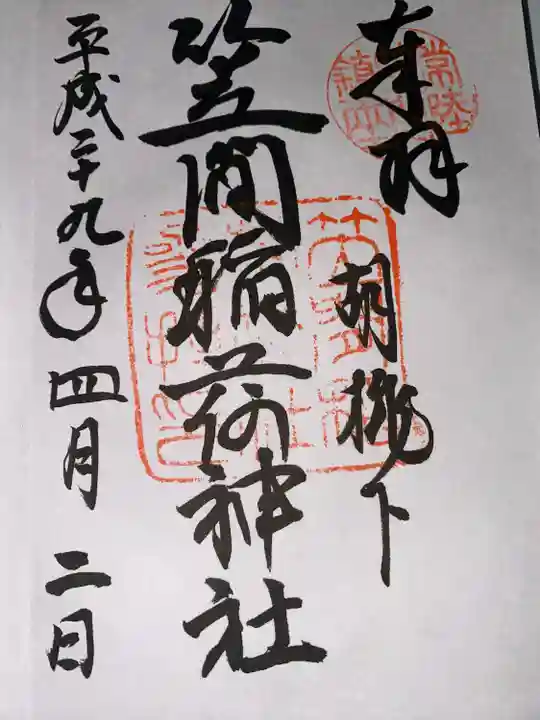 奉拝
胡桃下
笠間稲荷神社
平成二十九年四月二日
常陸